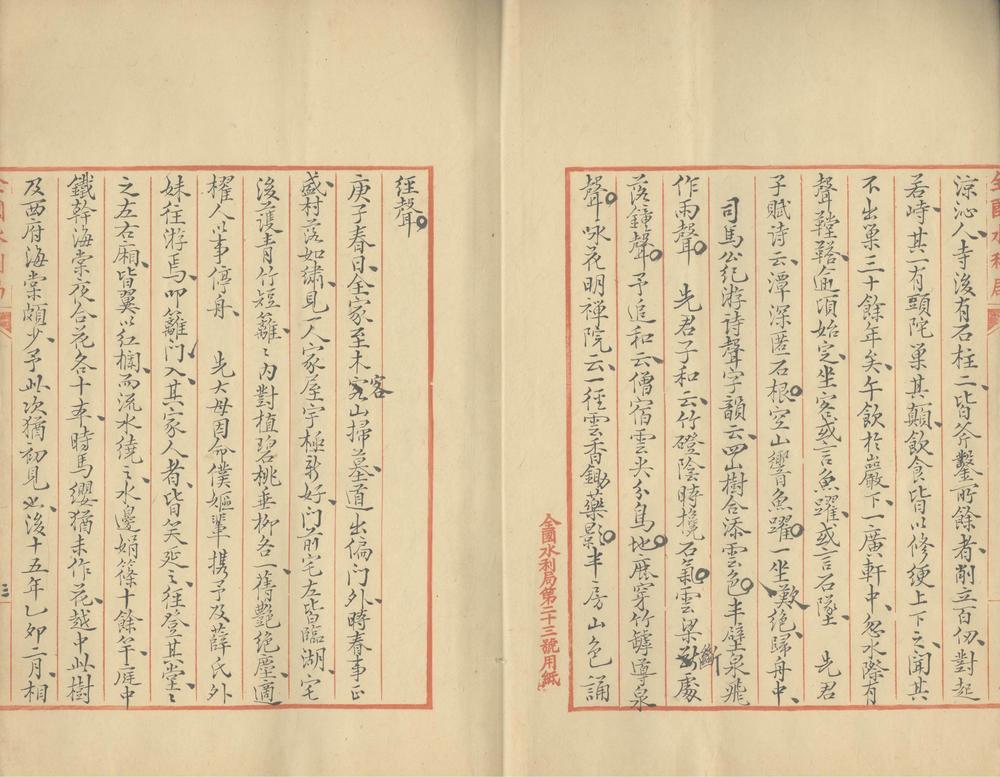 涼沁人寺後有石柱二皆斧鑿所餘者削立百仞對起
若峙其一有頭陀巢其顛飲食皆以修綆上下之聞其
不出巢三十餘年矣午飲於巖下一廣軒中忽水際有
聲鞺鞳食頃始定坐客或言魚躍或言石墜 先君
子賦诗云潭深匿石根空山響魚躍一坐歎絕歸舟中
司馬公紀游诗聲字韻云四山樹合添雲色半壁泉飛
作雨聲 先君子和云竹磴陰時攙石氣雲梁斷處
落鐘聲予追和云僧宿雲尖分鳥地厎穿竹罅導泉
聲咏花明禅院云一徑雲香鋤藥影半房山色誦
全國水利局第二十三號用紙
經聲
庚子春日全家至木客山掃墓道出偏门外時春事正
盛村落如繡見一人家屋宇極新好门前宅左皆臨湖宅
後護青竹短籬籬內對植碧桃垂柳各一舊艷絕塵適
櫂人以事停舟 先大母因命僕嫗輩携予及薛氏外
妹往游焉叩籬门入其家人者皆笑延之往登其堂堂
之左右廂皆翼以红欄而流水繞之水邊娟篠十餘竿庭中
鐵幹海棠夜合花各十本時馬纓猶未作花越中此樹
及西府海棠頗少予此次猶初見也後十五年乙卯二月相
三